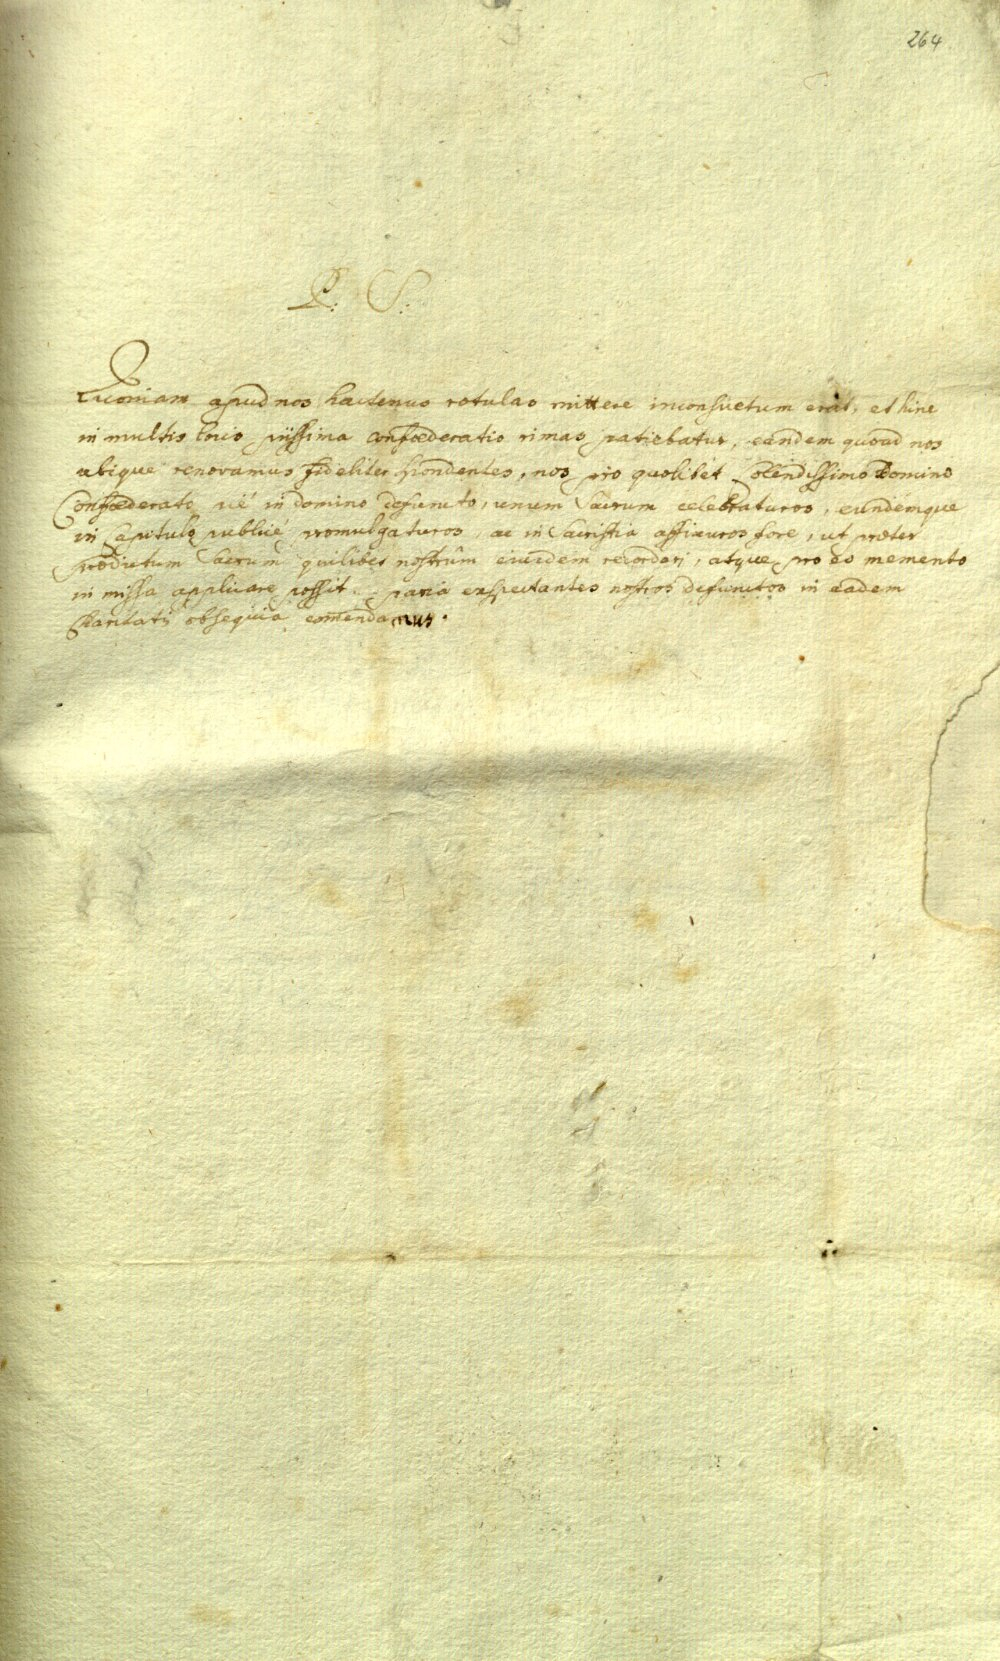 264
P: S:
Quoniam apud nos hactenus rotulas mittere inconsuetum erat, et hinc
in multis locis piissima confœderatio rimas patiebatur, eandem quoad nos
ubique renovamus fideliter spondentes, nos pro quolibet Colendissimo Domino
Confœderato piè in domino defuncto, unum sacrum celebraturos, eundemque
in Capitulo publicè promulgaturos, ac in sacristia affixuros fore, ut præter
prædictum sacrum quilibet nostrûm eiusdem recordari, atque pro eo memento
in missa applicare possit. paria exspectantes nostros defunctos in eadem
Charitatis obsequia comendamus.